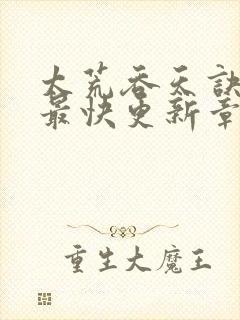 大荒吞天訣
最快更新章
重生大魔王